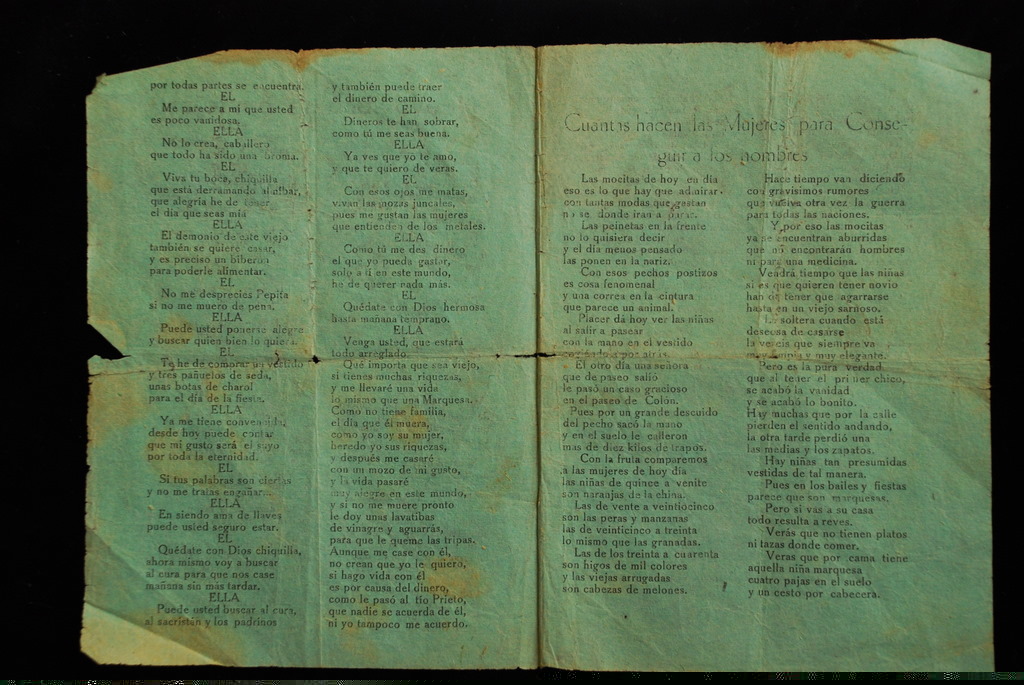 por todas partes se encuentra.
EL
Me parece a mí que usted
es poco vanidosa.
ELLA
No lo crea, caballero
que todo ha sido una broma.
EL
Viva tu boca, chiquilla
que está derramando almíbar,
que alegría he de tener
el día que seas mía
ELLA
El demonio de este viejo
también se quiere casar,
y es preciso un biberón
para poderle alimentar.
EL
No me desprecies Pepita
si no me muero de pena.
ELLA
Puede usted ponerse alegre
y buscar quien bien lo quiera.
EL
Te he de comprar un vestido
y tres pañuelos de seda,
unas botas de charol
para el día de la fiesta.
ELLA
Ya me tiene convencida,
desde hoy puede contar
que mi gusto será el suyo
por toda la eternidad.
EL
Si tus palabras son ciertas
y no me tratas engañar...
ELLA
En siendo ama de llaves
puede usted seguro estar.
EL
Quédate con Dios chiquilla,
ahora mismo voy a buscar
al cura para que nos case
mañana sin más tardar.
ELLA
Puede usted buscar al cura,
al sacristán y los padrinos
y también puede traer
el dinero de camino.
EL
Dineros te han sobrar,
como tú me seas buena.
ELLA
Ya ves que yo te amo,
y que te quiero de veras.
EL
Con esos ojos me matas,
vivan las mozas juncales,
pues me gustan las mujeres
que entienden de los metales.
ELLA
Como tú me des dinero
el que yo pueda gastar,
solo a tí en este mundo,
he de querer nada más.
EL
Quédate con Dios hermosa
hasta mañana temprano.
ELLA
Venga usted, que estará
todo arreglado.
Qué importa que sea viejo,
si tienes muchas riquezas,
y me llevaré una vida
lo mismo que una Marquesa.
Como no tiene familia,
el día que él muera,
como yo soy su mujer,
heredo yo sus riquezas,
y después me casaré
con un mozo de mi gusto,
y la vida pasaré
muy alegre en este mundo,
y si no me muere pronto
le doy unas lavatibas
de vinagre y aguarrás,
para que le queme las tripas.
Aunque me case con él,
no crean que yo le quiero,
si hago vida con él
es por causa del dinero,
como le pasó al tío Prieto,
que nadie se acuerda de él,
ni yo tampoco me acuerdo.
Cuantas hacen las Mujeres para Conse-
guir a los hombres
Las mocitas de hoy en día
eso es lo que hay que admirar
con tantas modas que gastan
no se donde irán a parar.
Las peinetas en la frente
no lo quisiera decir
y el día menos pensado
las ponen en la nariz.
Con esos pechos postizos
es cosa fenomenal
y una correa en la cintura
que parece un animal.
Placer dá hoy ver las niñas
al salir a pasear
con la mano en el vestido
cogiéndola por atrás.
El otro día una señora
que de paseo salió
le pasó un caso gracioso
en el paseo de Colón.
Pues por un grande descuido
del pecho sacó la mano
y en el suelo le calleron
más de diez kilos de trapos.
Con la fruta comparemos
a las mujeres de hoy día
las niñas de quince a veinte
son naranjas de la china.
Las de vente a veintiocinco
son las peras y manzanas
las de veinticinco a treinta
lo mismo que las granadas.
Las de los treinta a cuarenta
son higos de mil colores
y las viejas arrugadas
son cabezas de melones.
Hace tiempo van diciendo
con gravísimos rumores
que vuelva otra vez la guerra
para todas las naciones.
Y por eso las mocitas
ya se encuentran aburridas
que no encontrarán hombres
ni para una medicina.
Vendrá tiempo que las niñas
si es que quieren tener novio
han de tener que agarrarse
hasta en un viejo sarnoso.
La soltera cuando está
deseosa de casarse
la veréis que siempre va
muy limpia y muy elegante.
Pero es la pura verdad
que al tener el primer chico,
se acabó la vanidad
y se acabó lo bonito.
Hay muchas que por la calle
pierden el sentido andando,
la otra tarde perdió una
las medias y los zapatos.
Hay niñas tan presumidas
vestidas de tal manera.
Pues en los bailes y fiestas
parece que son marquesas.
Pero si vas a su casa
todo resulta a reves.
Verás que no tienen platos
ni tazas donde comer.
Verás que por cama tiene
aquella niña marquesa
cuatro pajas en el suelo
y un cesto por cabecera.